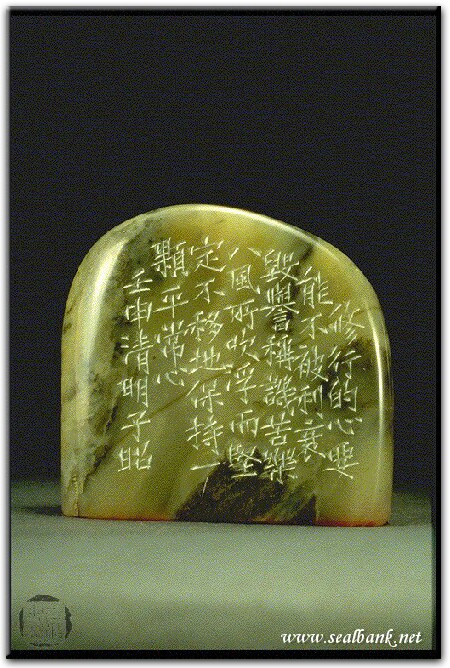 修行的心要
能不被利衰
毀譽稱譏苦樂
八風所吹浮而堅
定不移地保持一
顆平常心
壬申清明子昭
www.sealbank.net